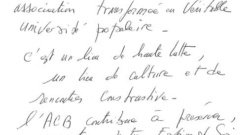 association transformée en véritable
université populaire.
C'est un lieu de haute lutte,
un lieu de culture et de
rencontres constructive.
l'ACB contribue à